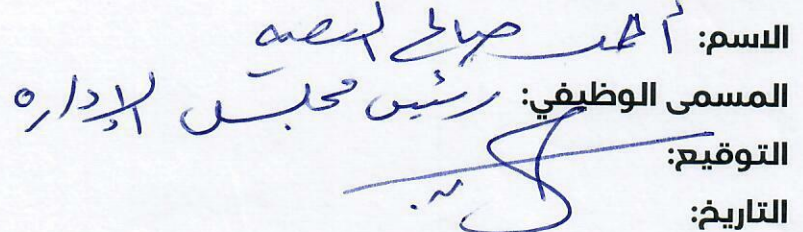 الاسم: أحمد صالح
المسمى الوظيفي: رئيس مجلس الإداره
التوقيع:
التاريخ: